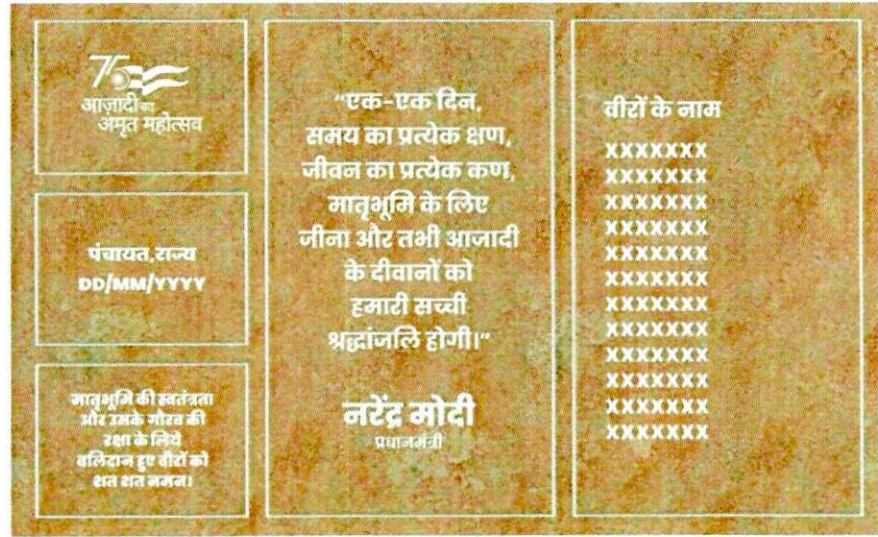 75
आज़ादी का
अमृत महोत्सव
पंचायत, राज्य
DD/MM/YYYY
मातृभूमि की स्वतंत्रता
और उसके गौरव की
रक्षा के लिये
बलिदान हुए वीरों को
शत शत नमन।
“एक-एक दिन,
समय का प्रत्येक क्षण,
जीवन का प्रत्येक कण,
मातृभूमि के लिए
जीना और तभी आजादी
के दीवानों को
हमारी सच्ची
श्रद्धांजलि होगी।”
नरेंद्र मोदी
प्रधानमंत्री
वीरों के नाम
XXXXXXX
XXXXXXX
XXXXXXX
XXXXXXX
XXXXXXX
XXXXXXX
XXXXXXX
XXXXXXX
XXXXXXX
XXXXXXX
XXXXXXX
XXXXXXX